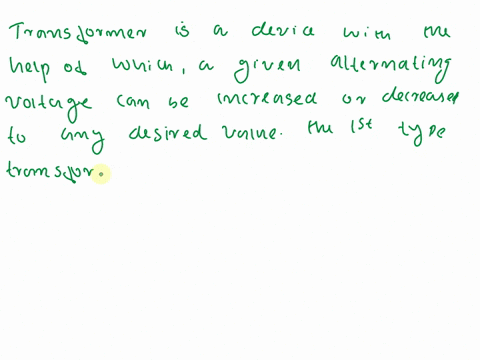 Transformer is a device with the
help of which, a given alternating
voltage can be increased or decreased
to any desired value. The 1st type
transfor